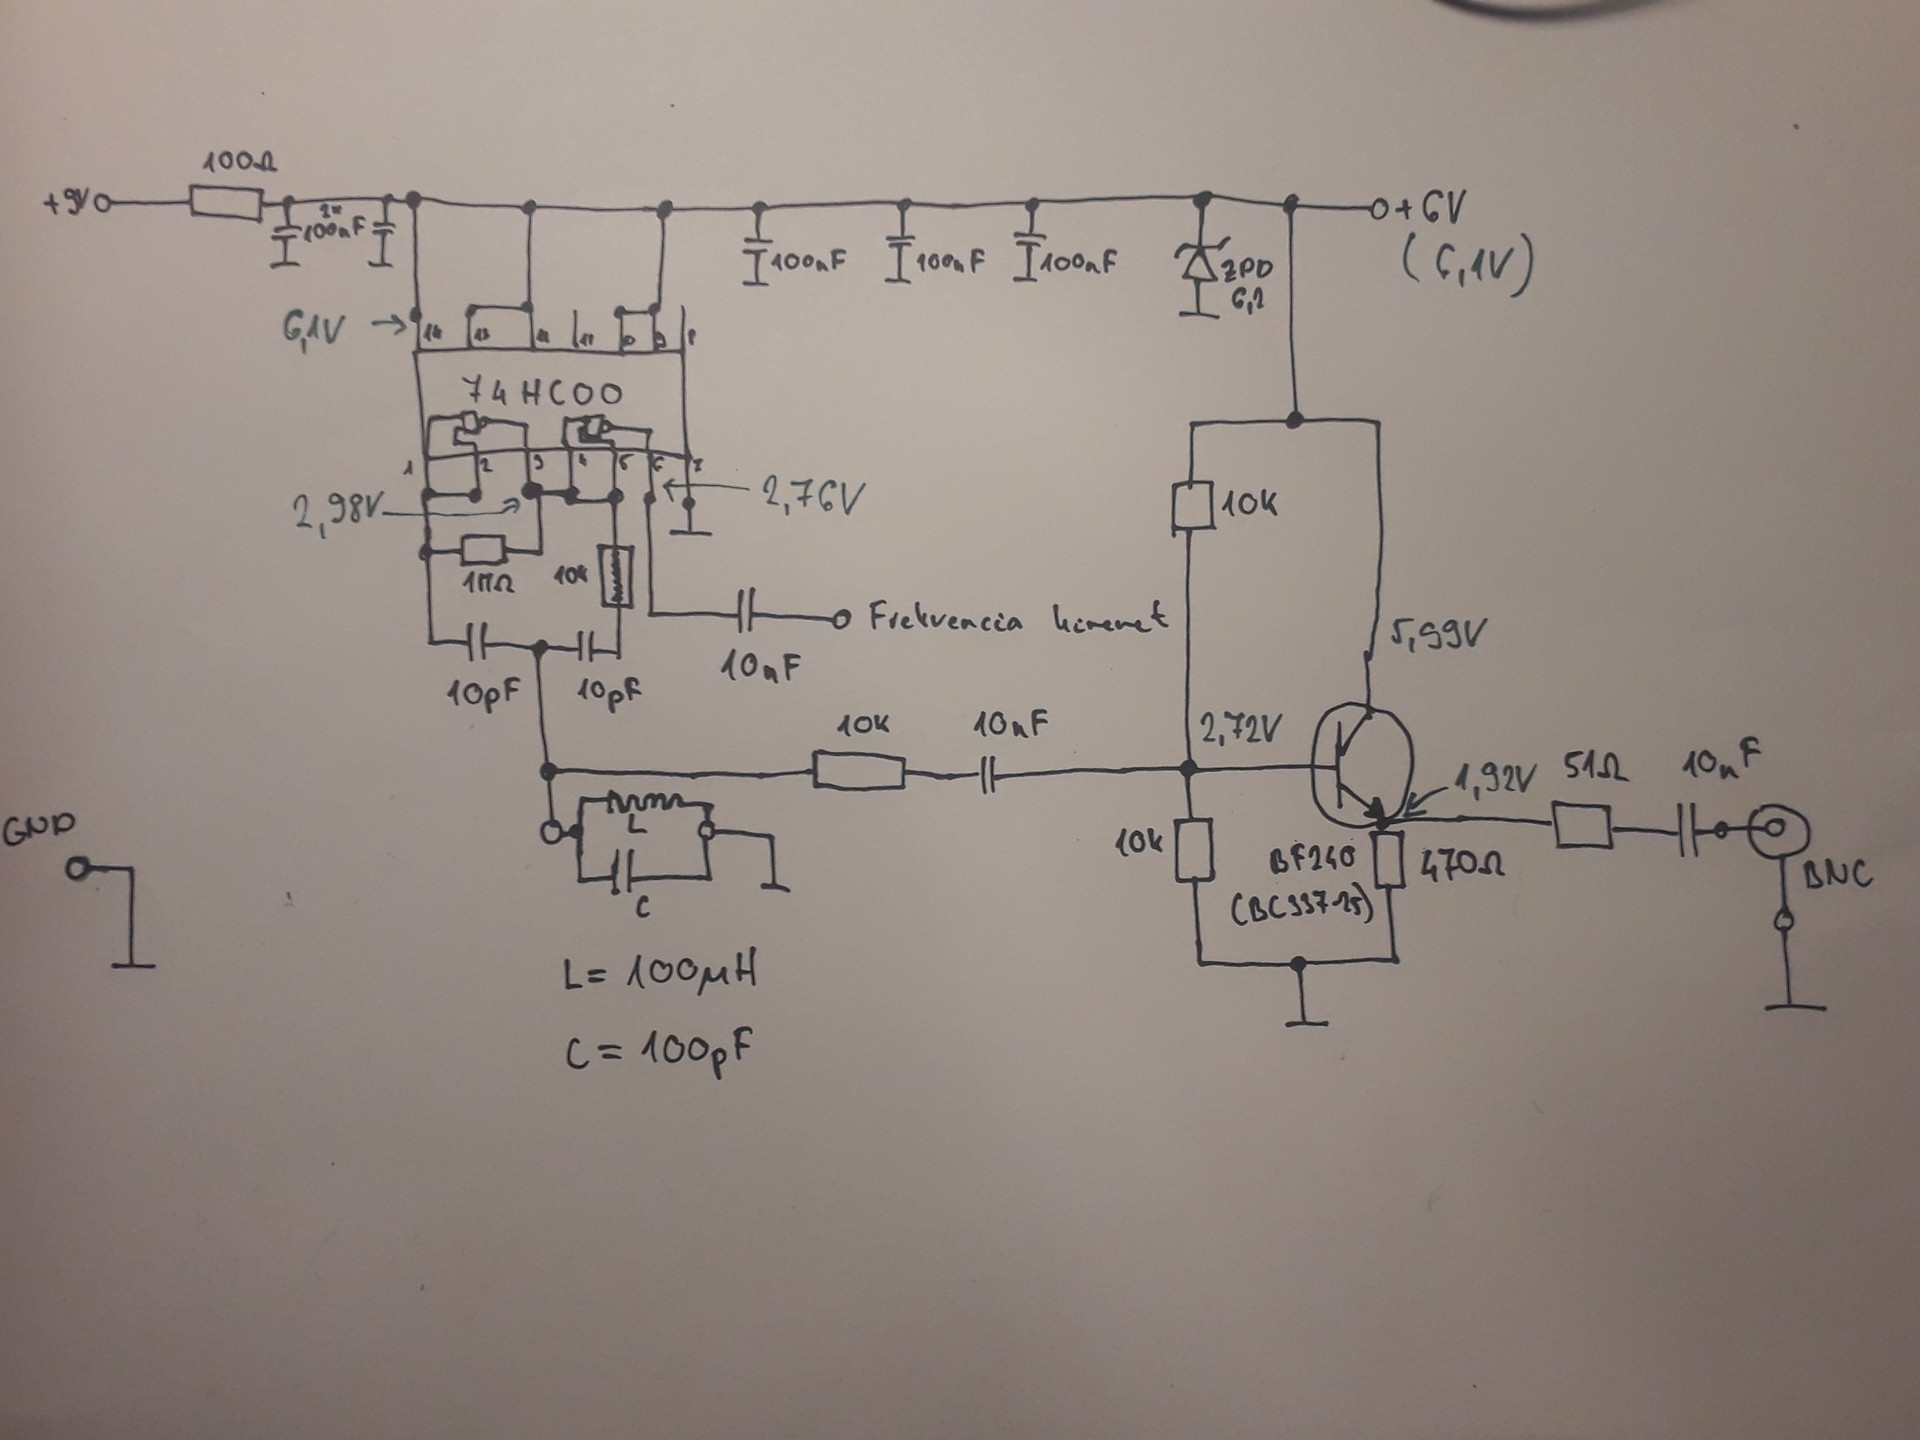 100Ω
+9V
2x
100nF
+6V
(6,1V)
100nF
100nF
100nF
ZPD
6,2
6,1V
14
13
9
8
74HC00
1
2
3
4
5
6
7
2,98V
2,76V
10k
1MΩ
10k
Frekvencia kimenet
10nF
5,99V
10pF
10pF
10k
10nF
2,72V
1,92V
51Ω
10nF
GND
L
10k
BF240
470Ω
BNC
C
(BC337-25)
L= 100μH
C= 100pF